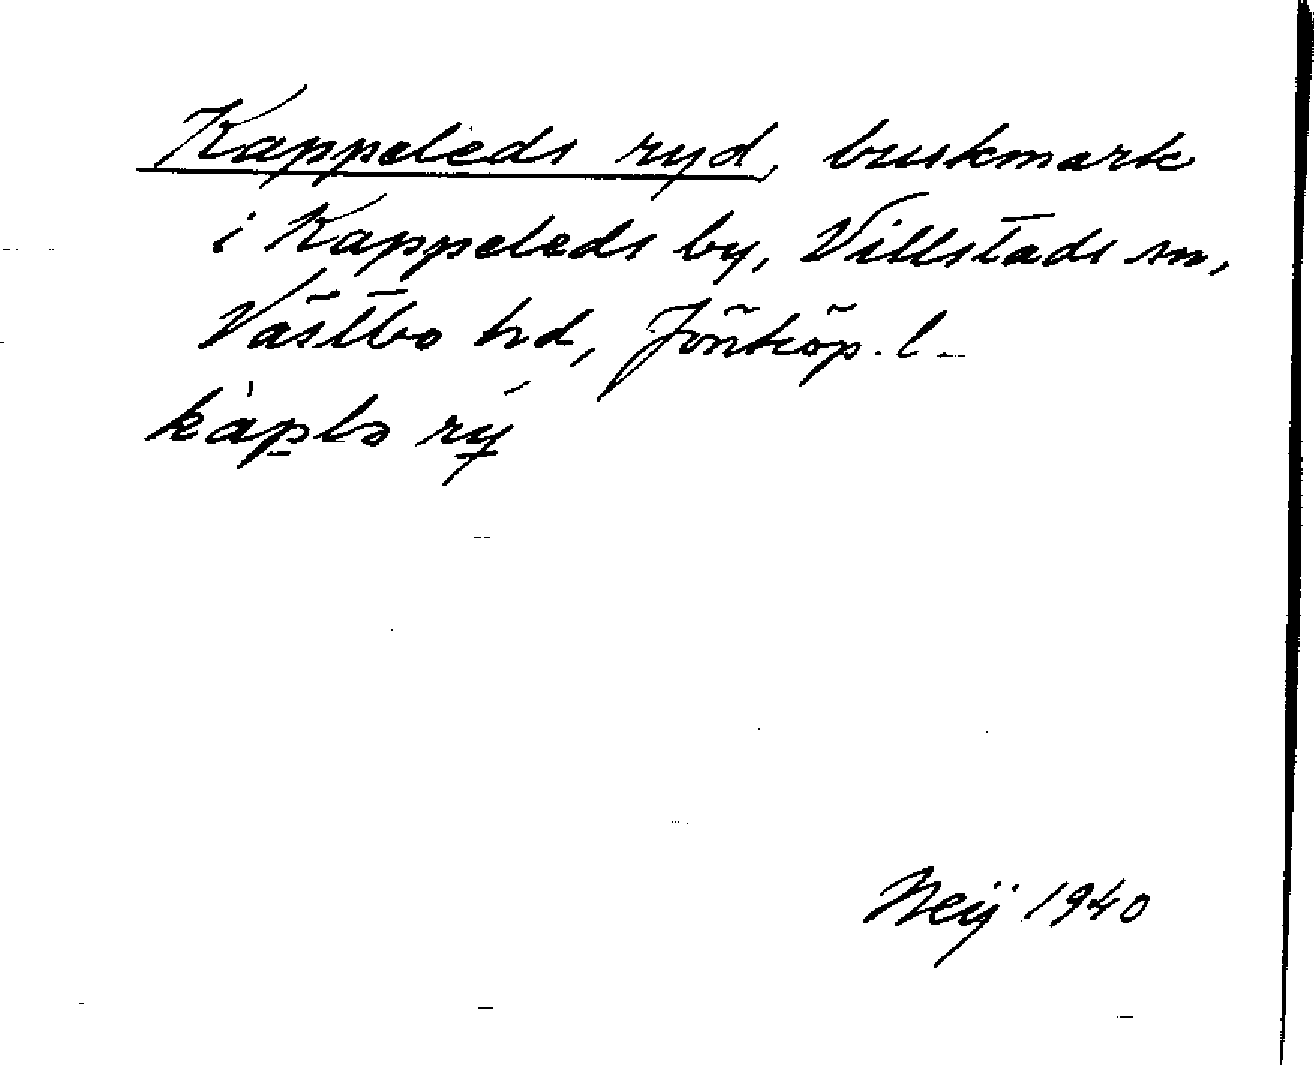 Kappeleds ryd, buskmark
i Kappeleds by, Villstads sn,
Västbo hd, Jönköp. l.
kàpls rý
Neij 1940